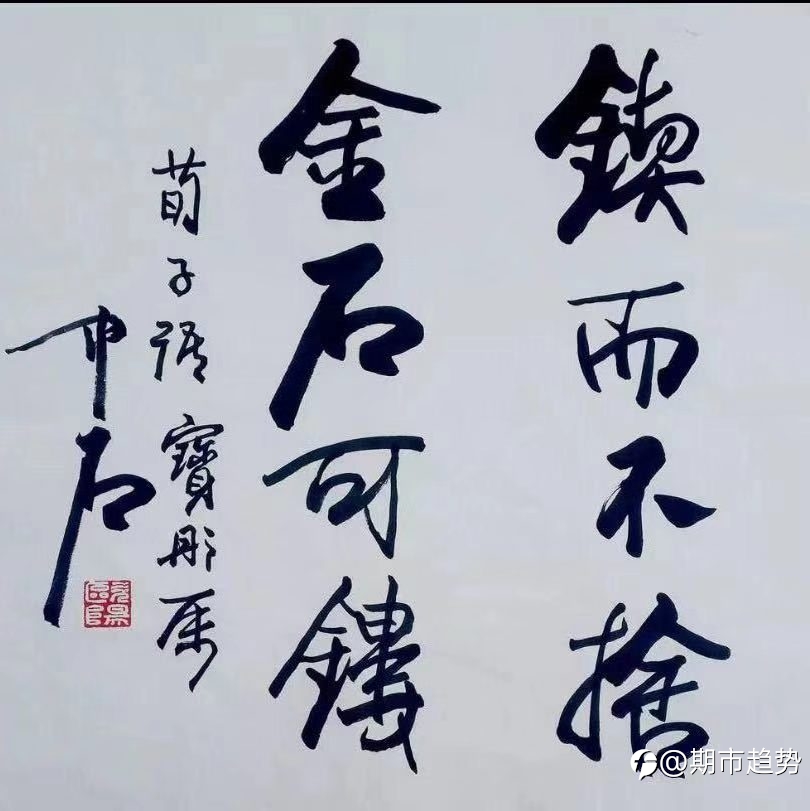 鍥而不捨
金石可鏤
荀子語 寶彤屬
中石
@期市趋势